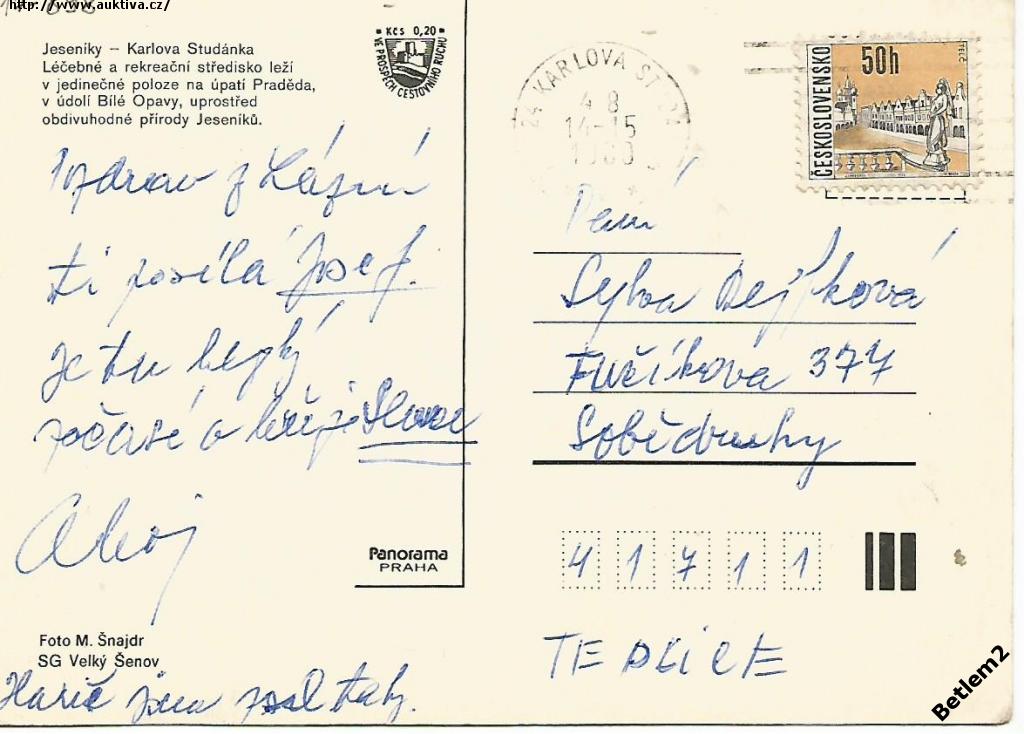 http://www.auktiva.cz/
Jeseníky – Karlova Studánka
Léčebné a rekreační středisko leží
v jedinečné poloze na úpatí Praděda,
v údolí Bílé Opavy, uprostřed
obdivuhodné přírody Jeseníků.
Kčs 0,20
VE PROSPĚCH CESTOVNÍHO RUCHU
KARLOVA ST
4 8
14-15
ČESKOSLOVENSKO
50h
TELČ
Pozdrav z Lázní
ti posílá Josef.
Je tu hezký
počasí a
Ahoj
Paní
Sylva
Fučíkova 377
Sobědruhy
41711
TEPLICE
Panorama
PRAHA
Foto M. Šnajdr
SG Velký Šenov
Betlem2